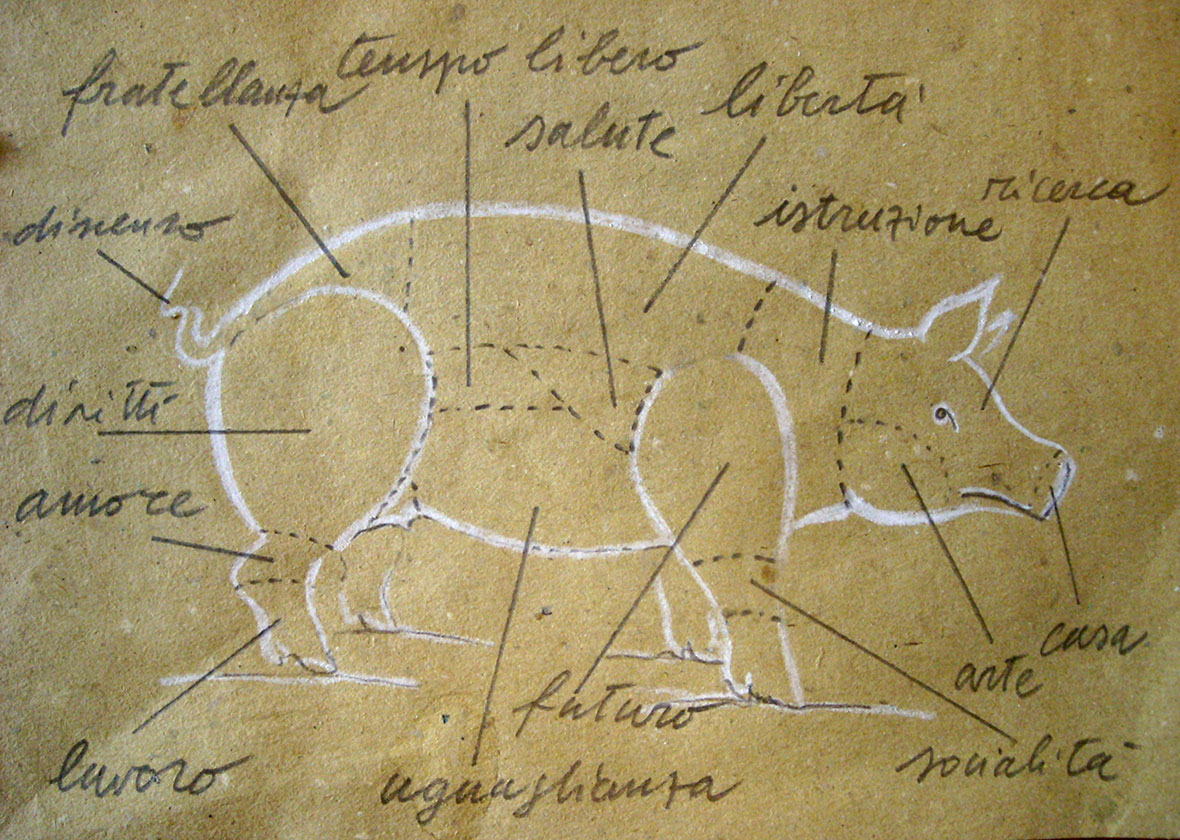 tempo libero
fratellanza
libertà
salute
ricerca
istruzione
dissenso
diritti
amore
casa
arte
futuro
socialità
lavoro
uguaglianza